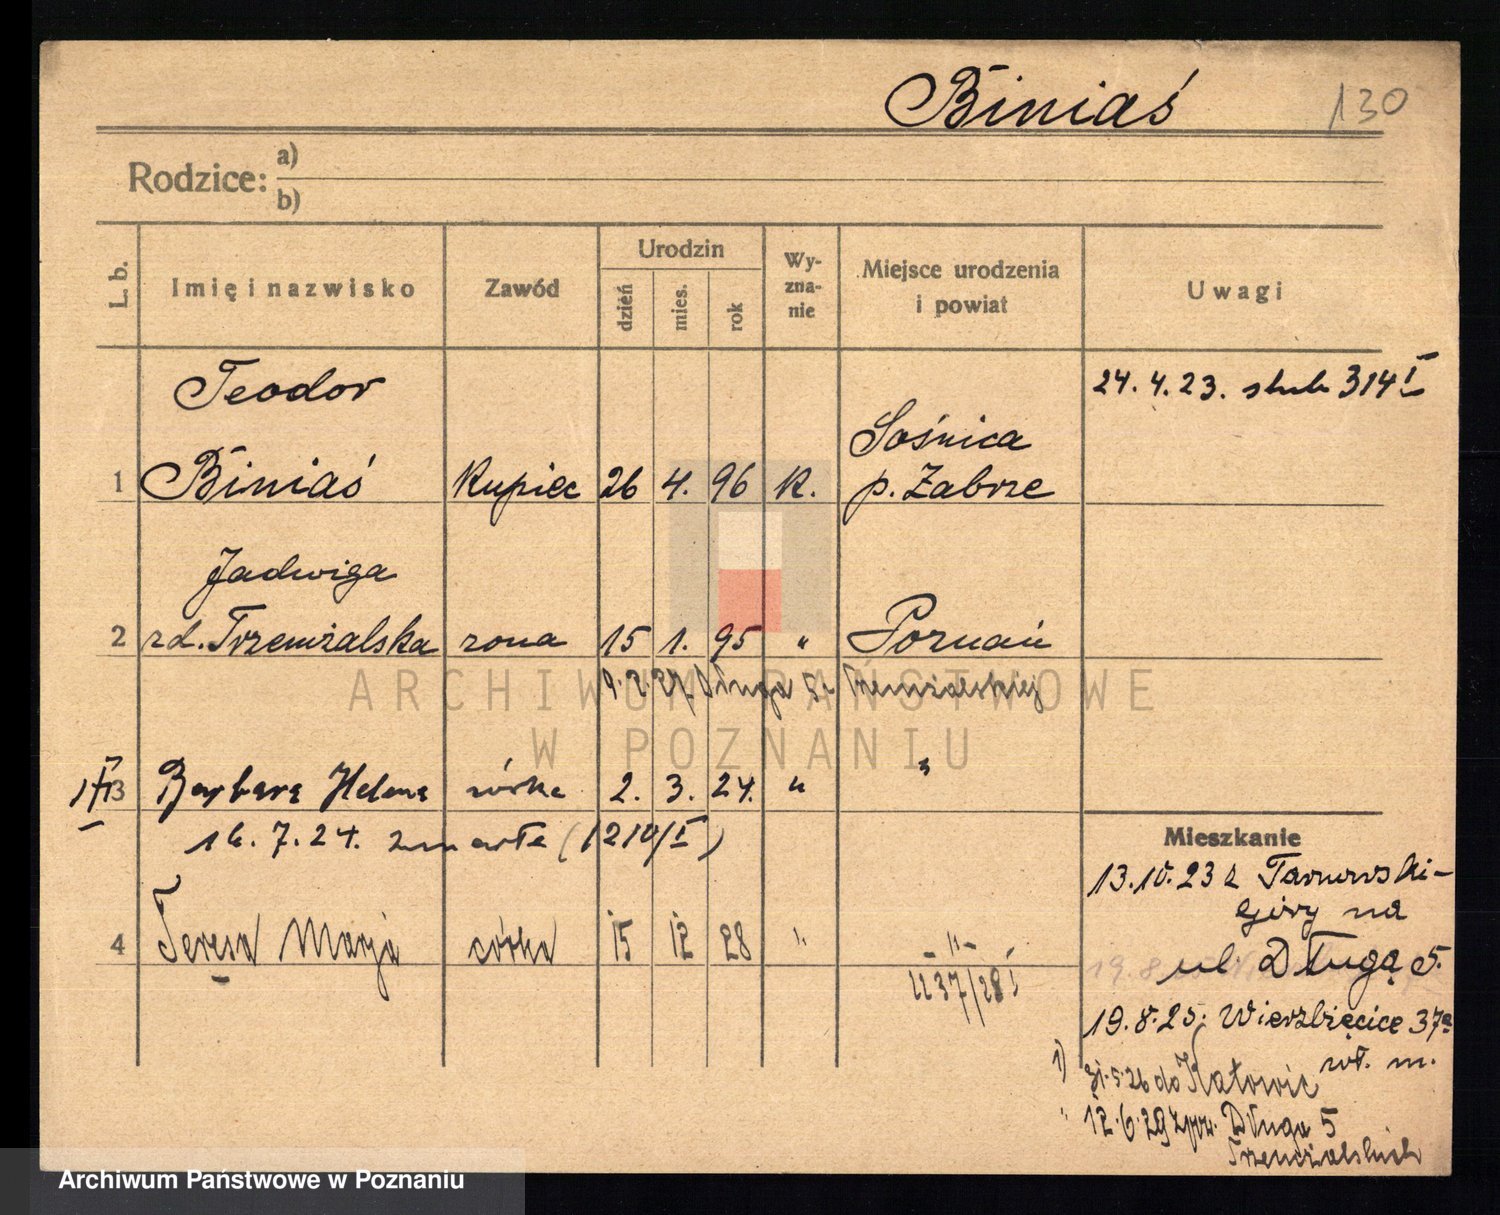 Biniaś 130
Rodzice: a)
b)
L. b. Imię i nazwisko Zawód Urodzin dzień mies. rok Wy-zna-nie Miejsce urodzenia i powiat Uwagi
Teodor 24. 4. 23. slub 314 I
Sośnica
1 Biniaś Kupiec 26 4. 96 k. p. Zabrze
Jadwiga
2 zd. Trzemżalska żona 15 1. 95 " Poznań
9. 2. 27 Długa 5 Trzemżalskiej
ARCHIWUM PAŃSTWOWE
W POZNANIU
3 Barbara Helena córka 2. 3. 24. " "
16. 7. 24. zmarła (1210/I)
4 Teresa Marja córka 15 12 28 " - " -
1237/28 I
Mieszkanie
13. 10. 23 z Tarnowski-
Góry na
ul. Długą 5.
19. 8. 25. Wierzbięcice 37a
wł. m.
1) 31. 5. 26 do Katowic
" 12. 6. 29 Długa 5
Trzemżalskich
Archiwum Państwowe w Poznaniu